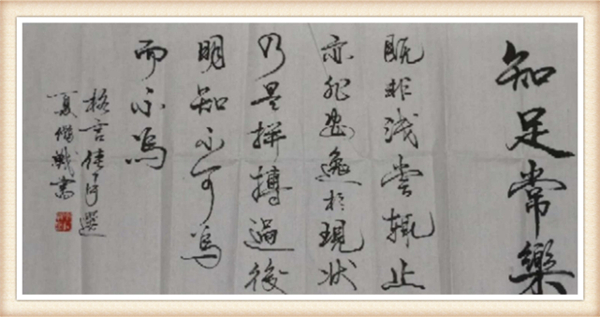 知足常樂
既非浅尝辄止
亦非安逸於現状
乃是拼搏過後
明知不可為
而不為
格言佳句選
夏備戰書